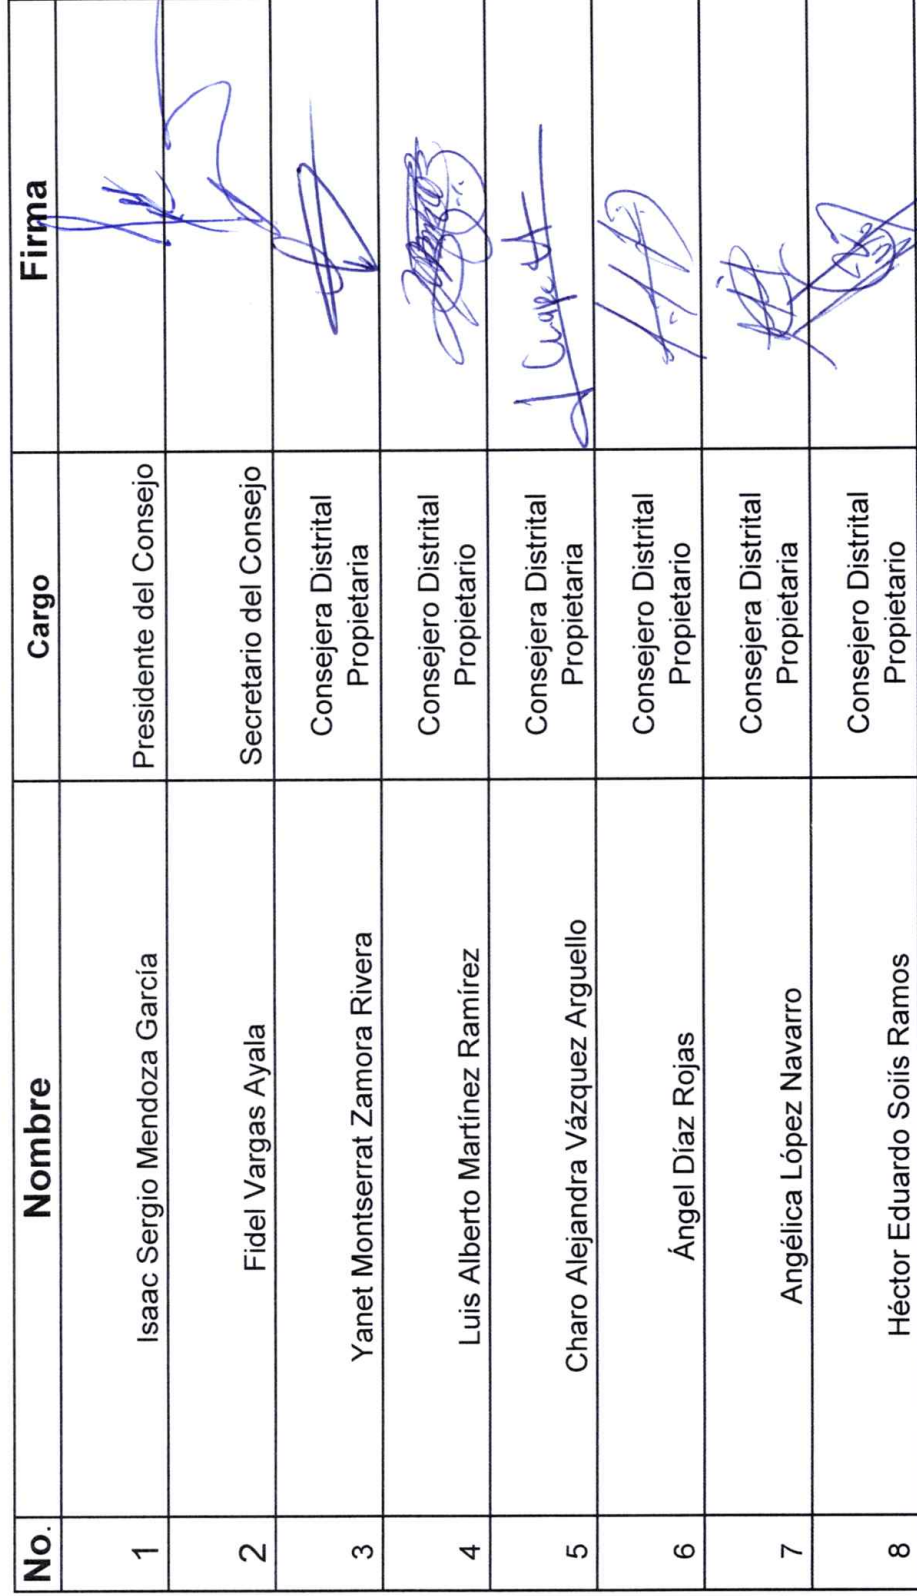 No. Nombre Cargo Firma
1 Isaac Sergio Mendoza García Presidente del Consejo
2 Fidel Vargas Ayala Secretario del Consejo
3 Yanet Montserrat Zamora Rivera Consejera Distrital
Propietaria
4 Luis Alberto Martínez Ramírez Consejero Distrital
Propietario
5 Charo Alejandra Vázquez Arguello Consejera Distrital
Propietaria
6 Ángel Díaz Rojas Consejero Distrital
Propietario
7 Angélica López Navarro Consejera Distrital
Propietaria
8 Héctor Eduardo Soiís Ramos Consejero Distrital
Propietario